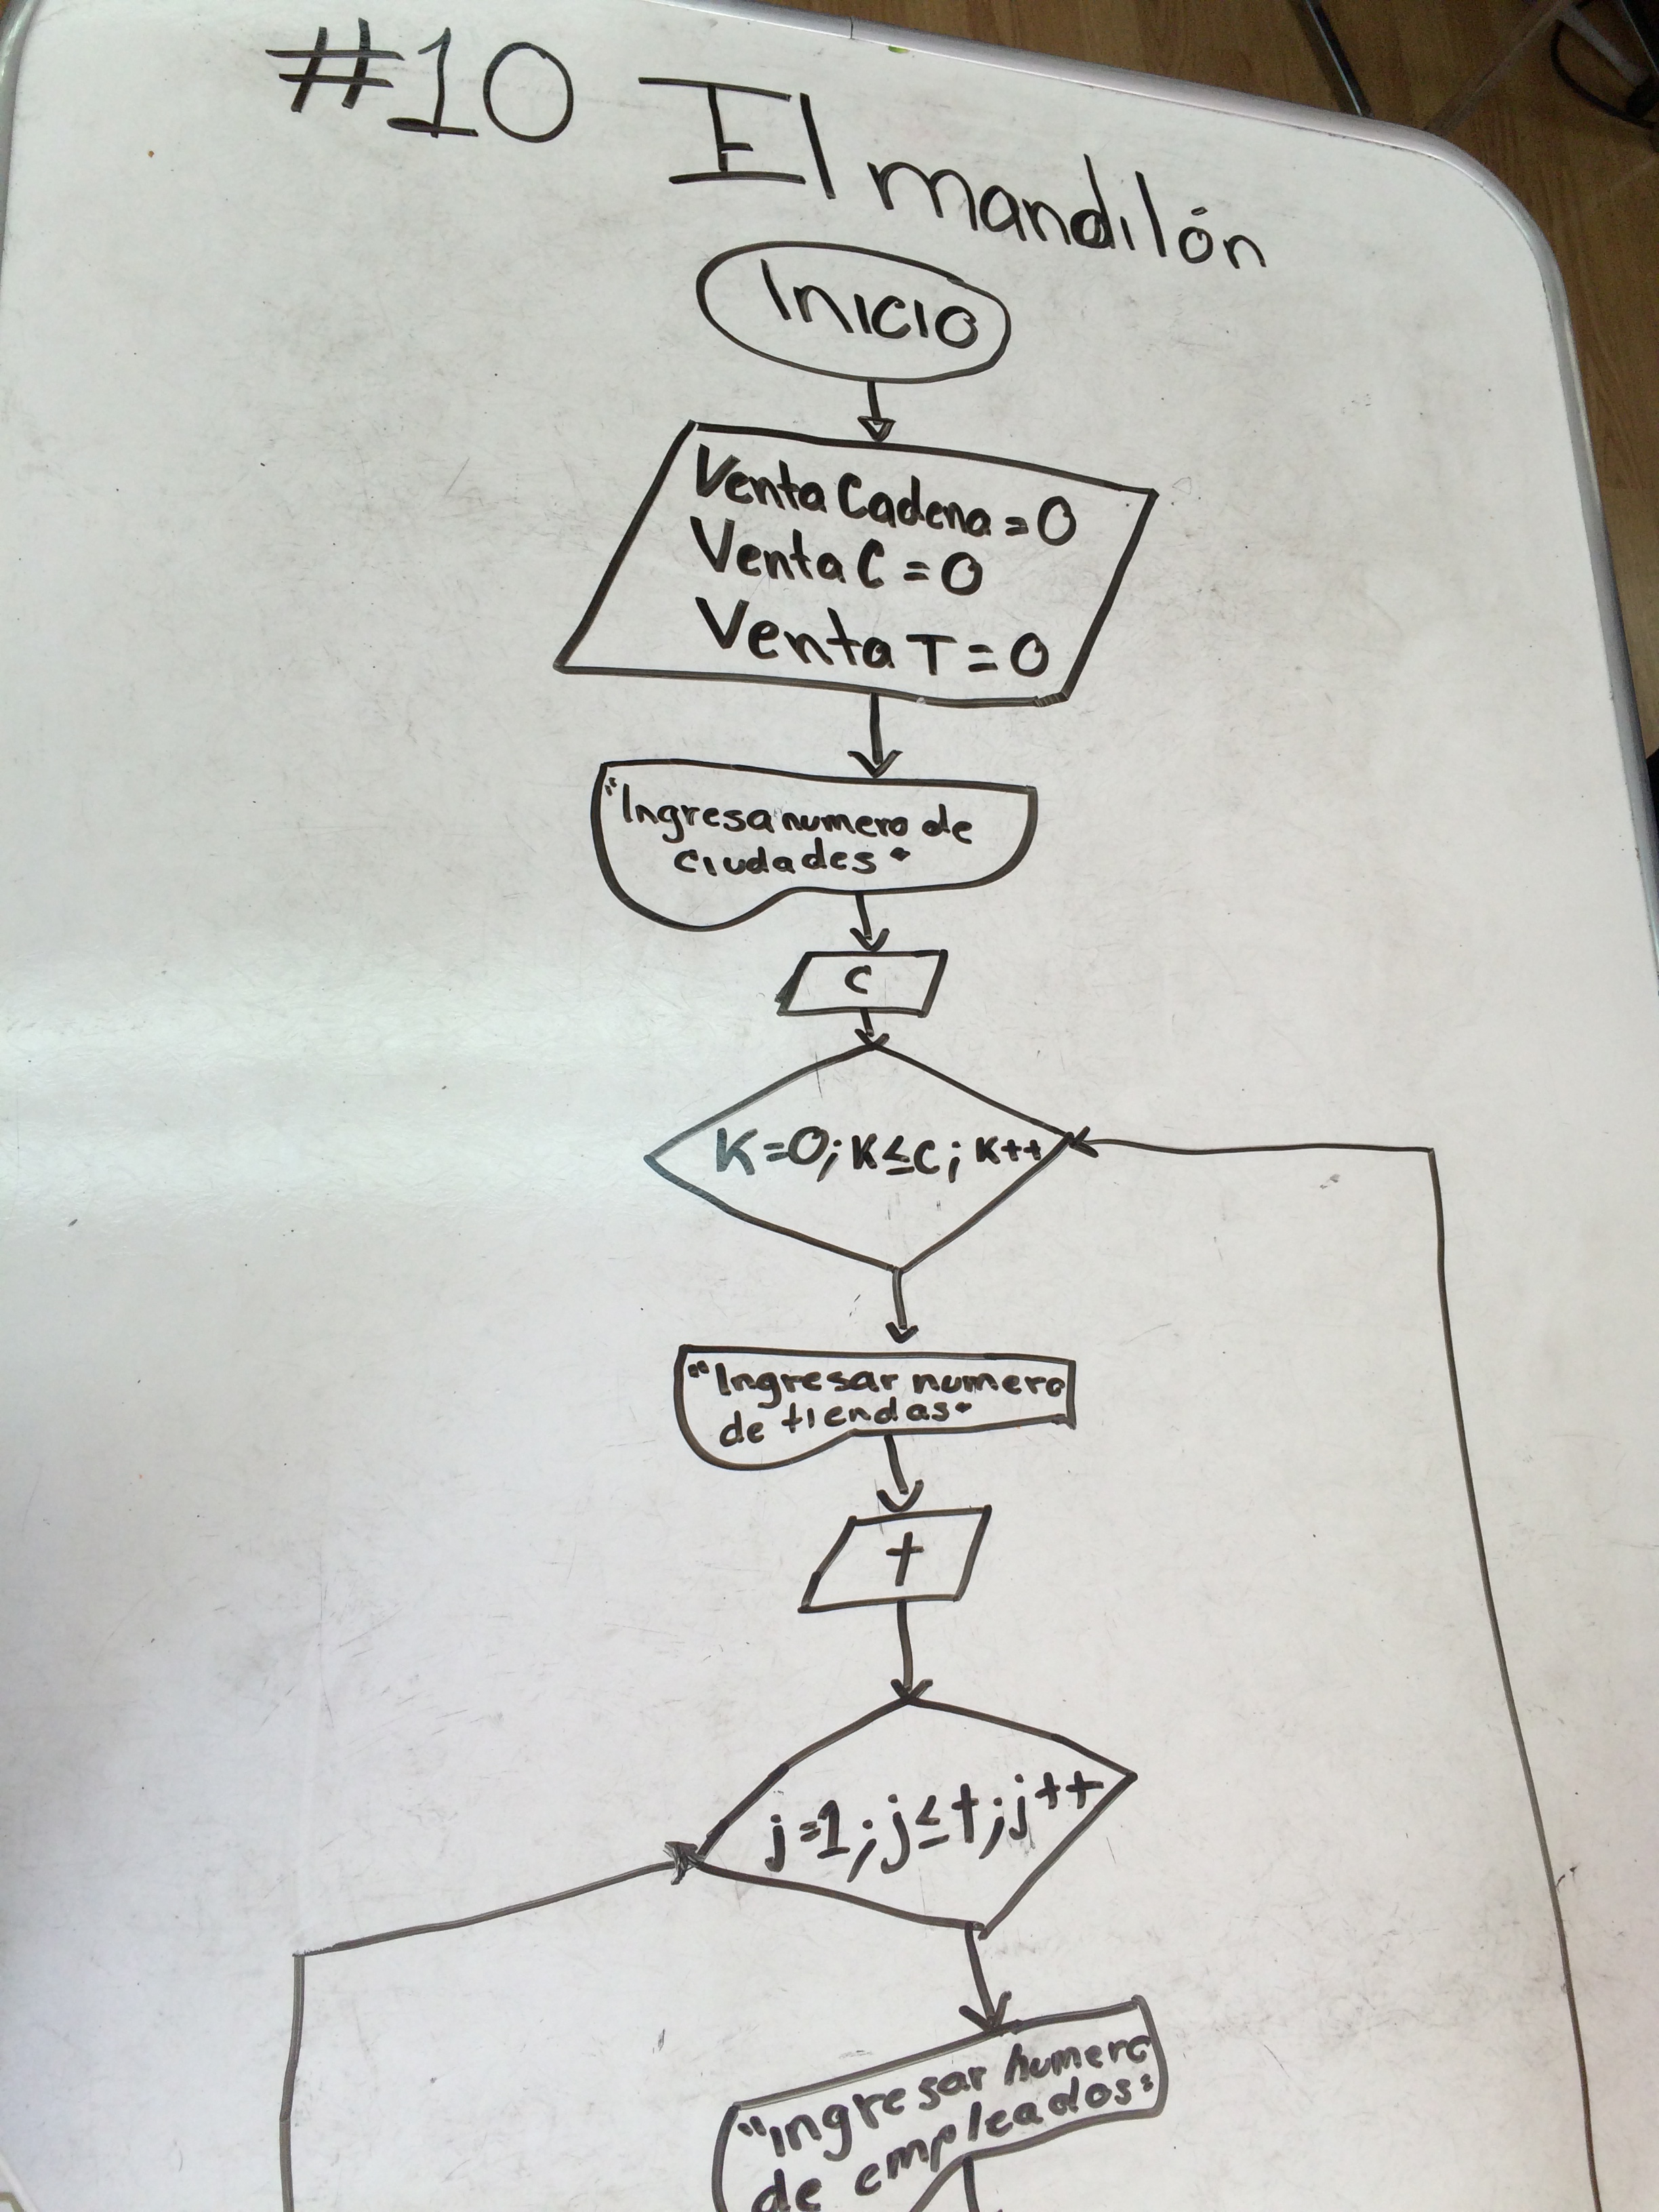 #10 El mandilón
Inicio
Venta Cadena = 0
Venta C = 0
Venta T = 0
"Ingresa numero de
ciudades"
C
K=0; K≤C; K++
"Ingresar numero
de tiendas"
t
j=1; j≤t; j++
"Ingresar numero
de empleados"